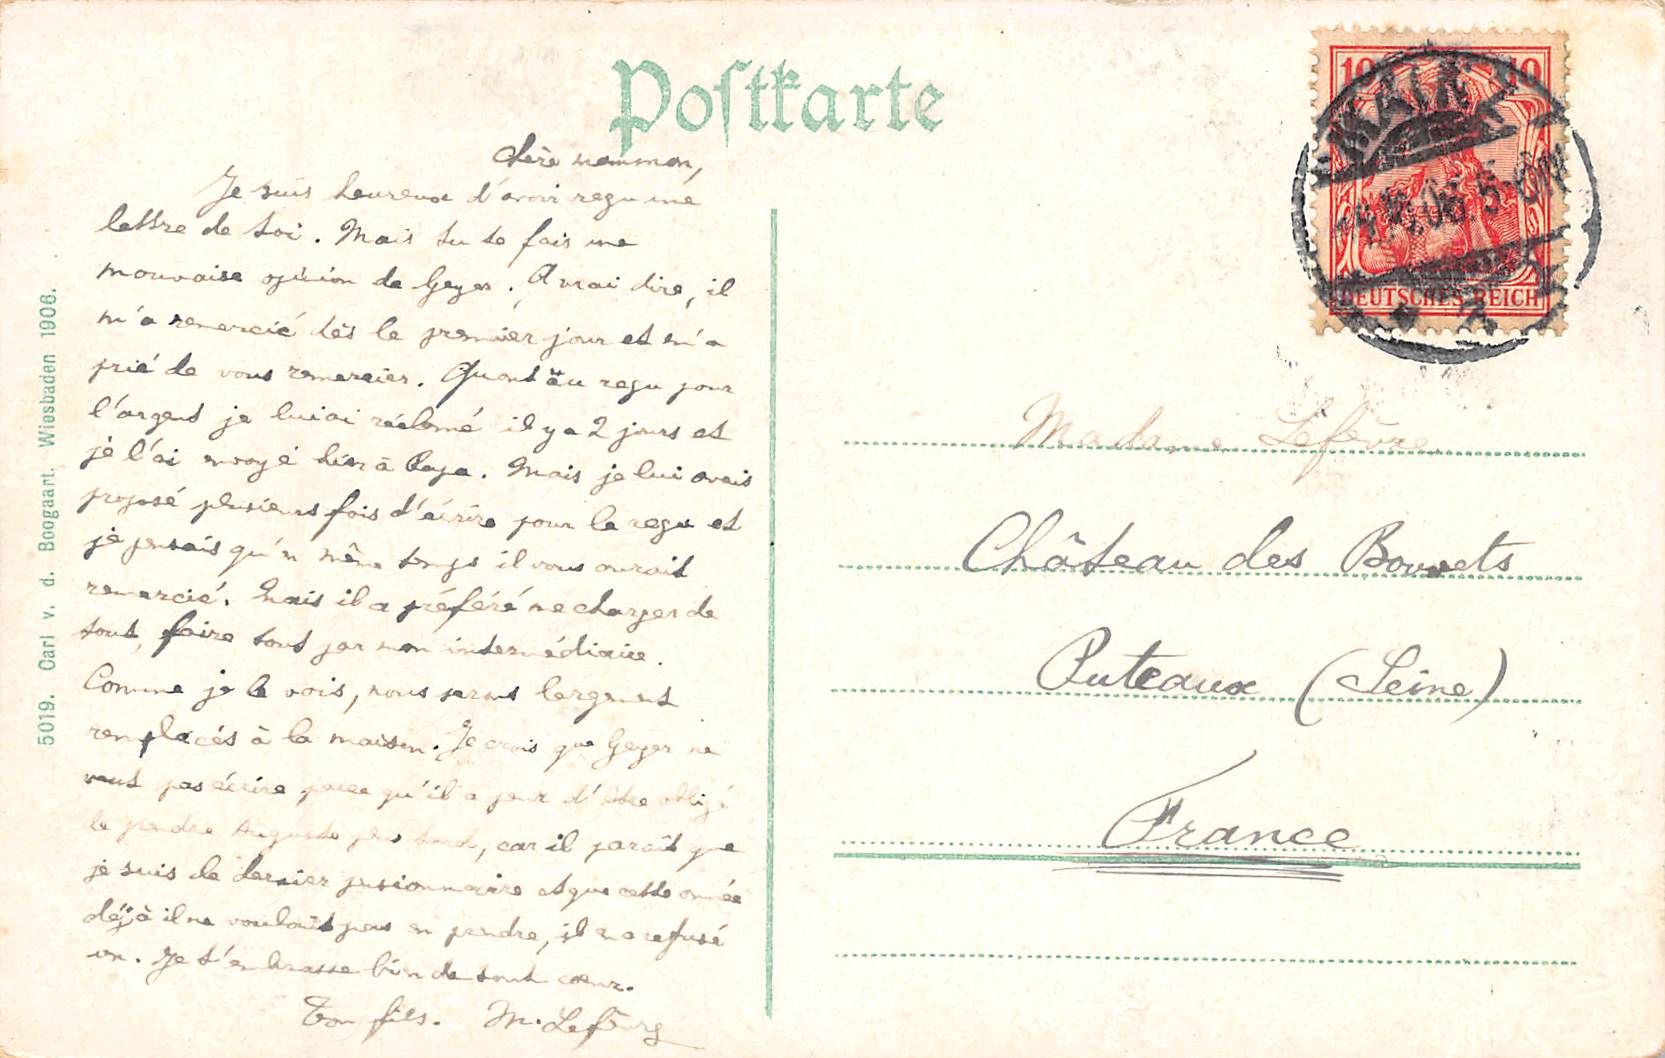 Postkarte
chère maman,
Je suis heureux d'avoir reçu une
lettre de toi. Mais tu te fais une
mauvaise opinion de Geyer. A vrai dire, il
m'a remercié dès le premier jour et m'a
prié de vous remercier. Quant au reçu pour
l'argent je lui ai réclamé il y a 2 jours et
je l'ai envoyé hier à Papa. Mais je lui avais
proposé plusieurs fois d'écrire pour le reçu et
je pensais qu'n même temps il vous aurait
remercié. Mais il a préféré me charger de
tout, faire tout par mon intermédiaire.
Comme je le vois, nous serons largement
remplacés à la maison. Je crois que Geyer ne
veut pas écrire parce qu'il a peur d'être obligé
le prendre Auguste plus tard, car il paraît que
je suis le dernier pensionnaire et que cette année
déjà il ne voulait pas en prendre, il en a refusé
un. Je t'embrasse bien de tout cœur.
Ton fils. M. Lefèvre
5019. Carl v. d. Boogaart. Wiesbaden 1906.
10 10
MAINZ
06. 5-6N
DEUTSCHES REICH
Madame Lefèvre
Château des Bouvets
Puteaux (Seine)
France